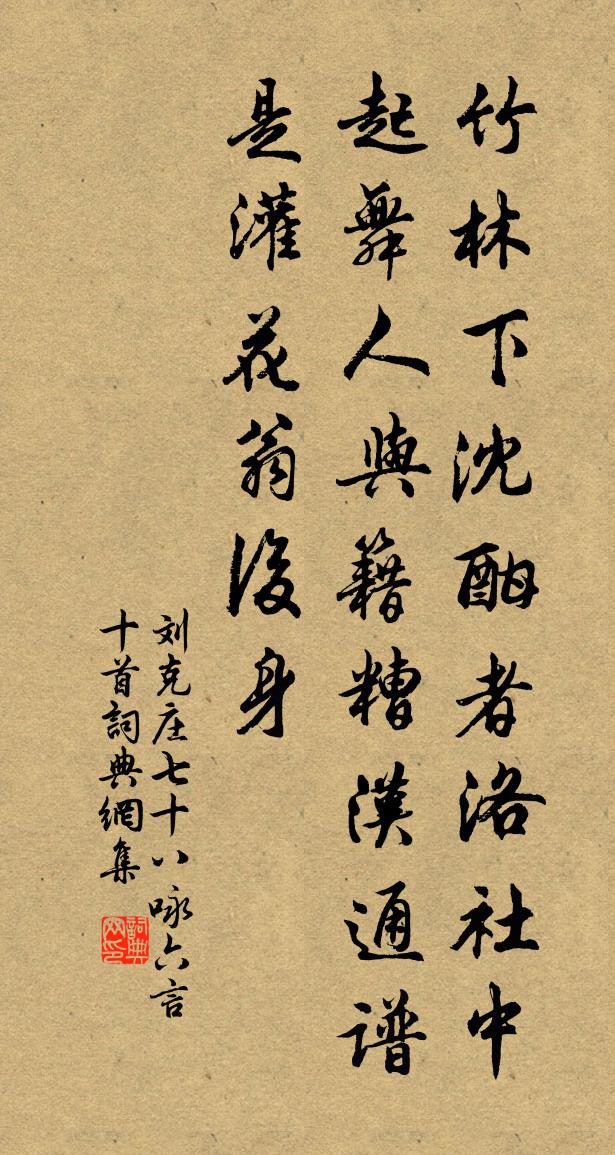 竹林下沈酣者洛社中
起舞人與籍糟漢通譜
是灌花翁後身
刘克庄七十八咏六言
十首詞典網集
詞典網印